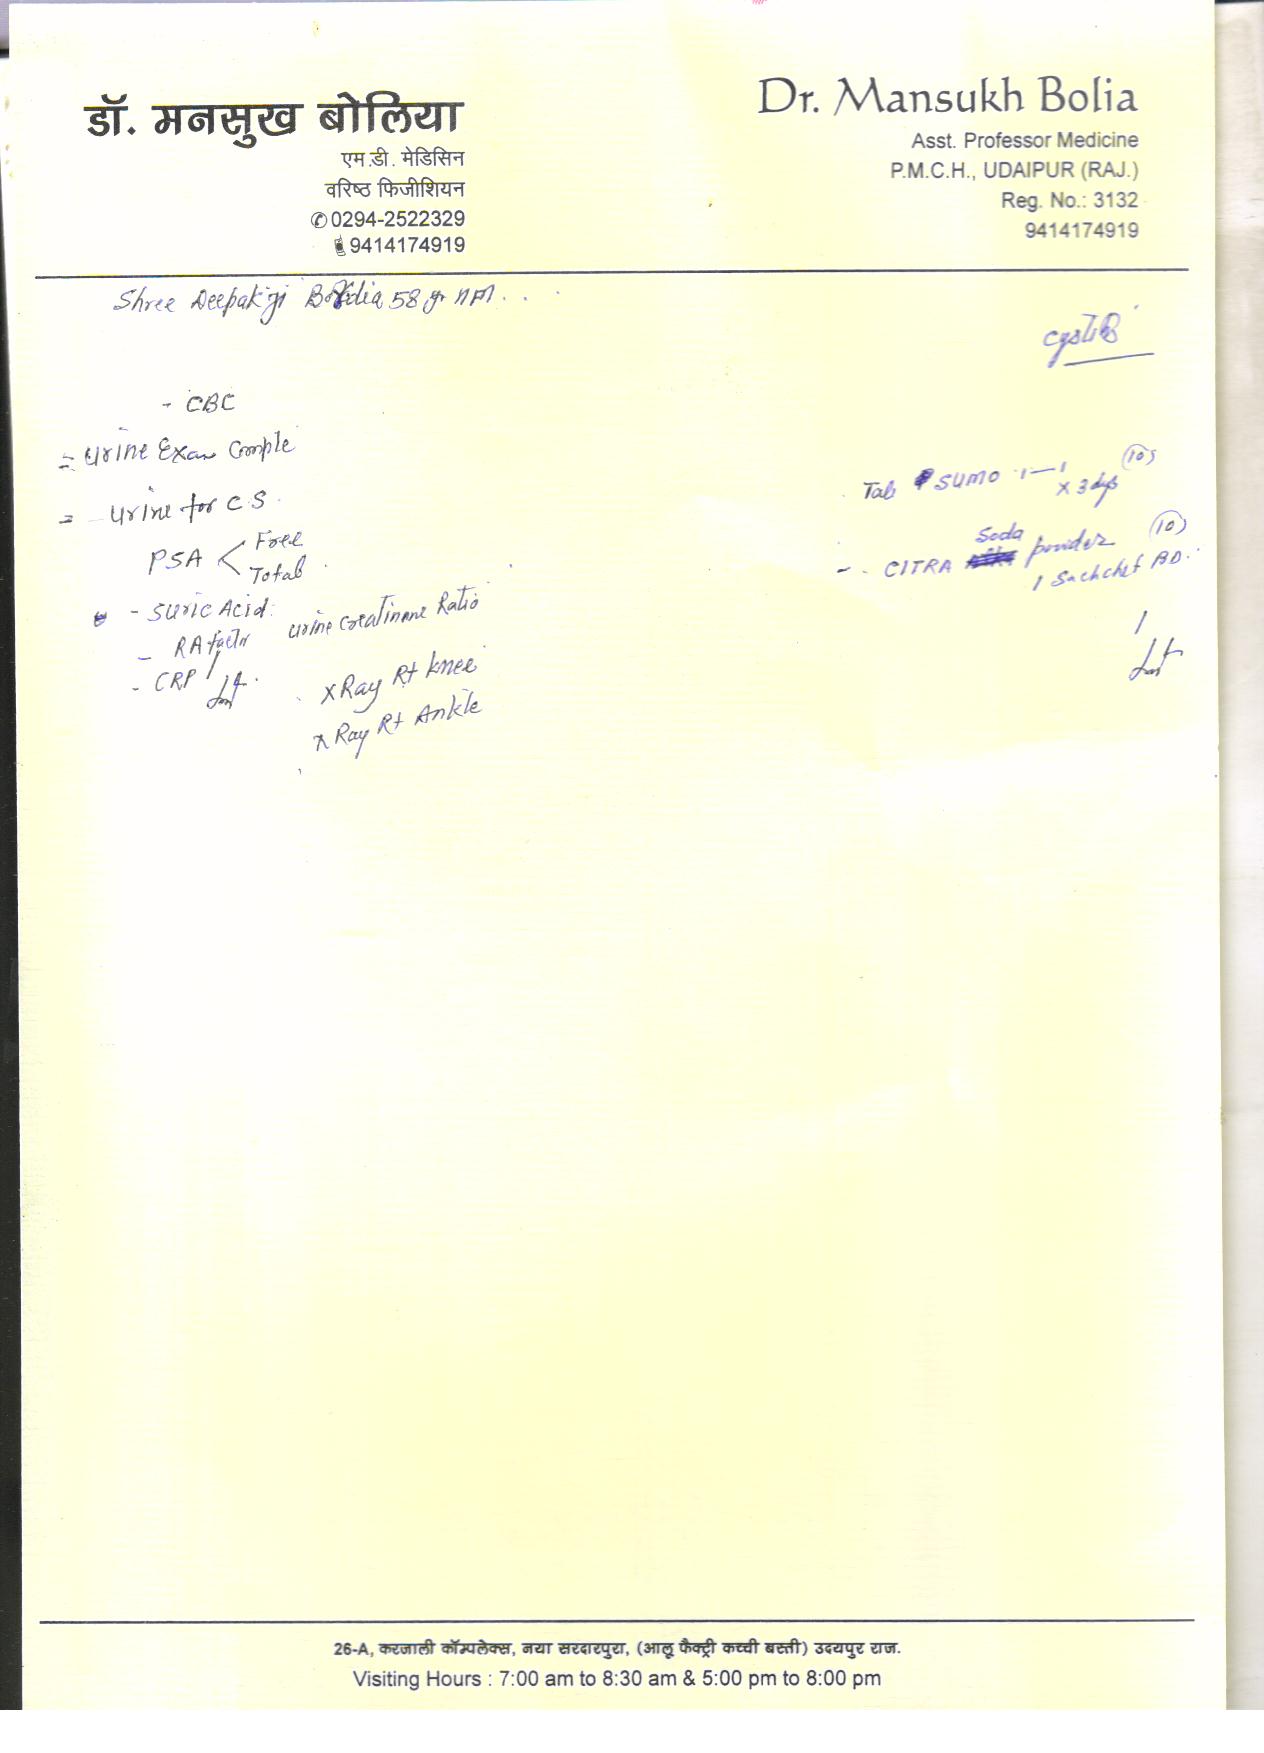 डॉ. मनसुख बोलिया
एम.डी. मेडिसिन
वरिष्ठ फिजीशियन
✆ 0294-2522329
9414174919
Dr. Mansukh Bolia
Asst. Professor Medicine
P.M.C.H., UDAIPUR (RAJ.)
Reg. No.: 3132
9414174919
Shree Deepak ji 58 yr
Cystitis
- CBC
= Urine Exam Comple
= Urine for C S
PSA < Free
Total
- S uric Acid
Urine Creatinine Ratio
- RA factor
- CRP
X Ray Rt knee
X Ray Rt Ankle
Tab SUMO 1-1 (10)
x 3 days
Soda
- CITRA powder (10)
1 Sachchet BD
26-A, करजाली कॉम्पलेक्स, नया सरदारपुरा, (आलू फैक्ट्री कच्ची बस्ती) उदयपुर राज.
Visiting Hours : 7:00 am to 8:30 am & 5:00 pm to 8:00 pm